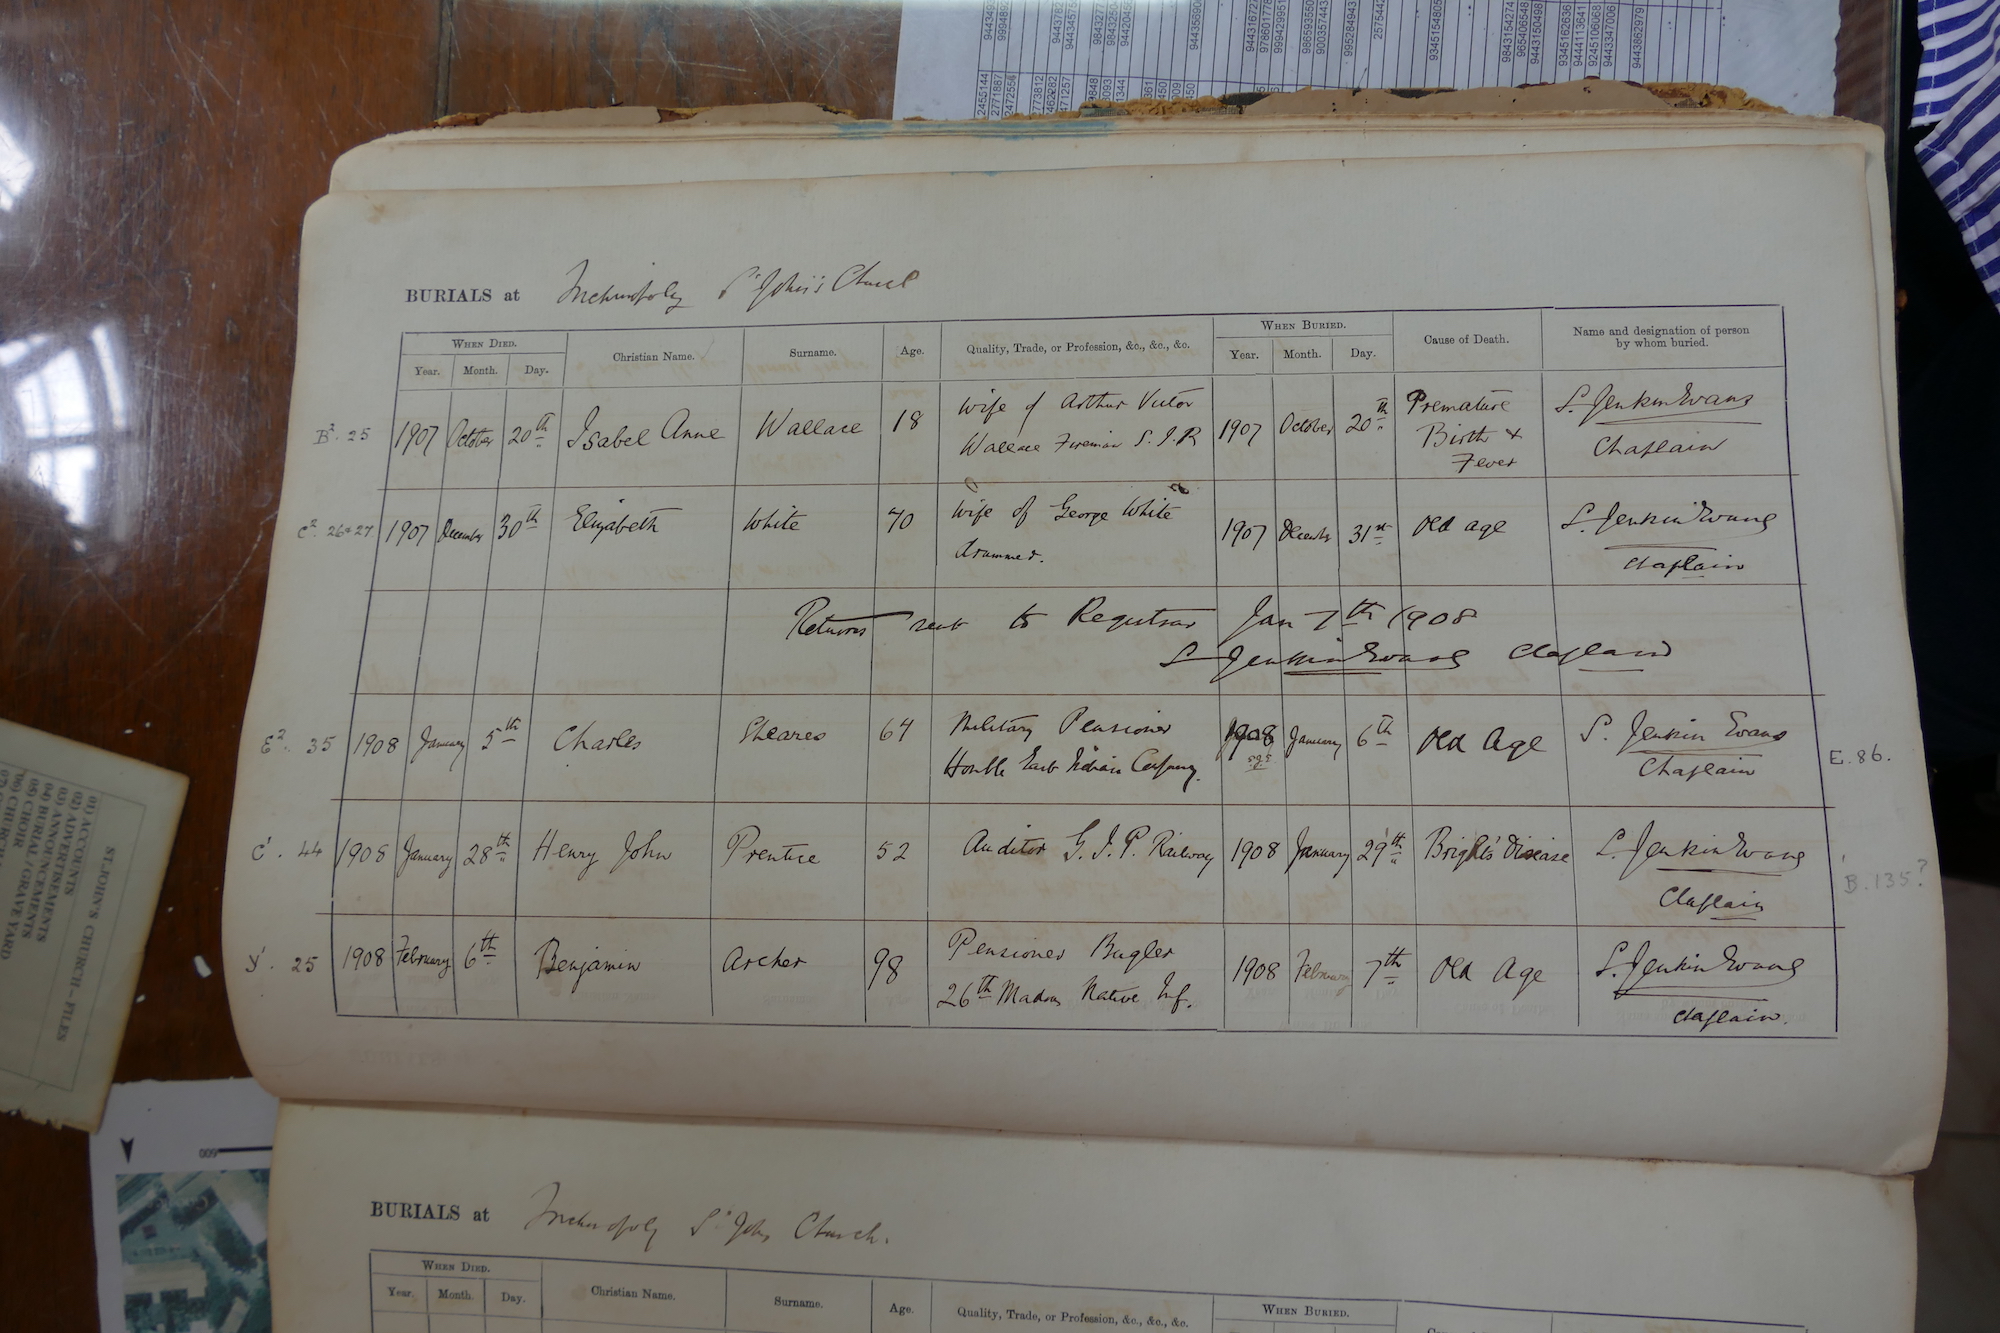 BURIALS at Trichinopoly St John's Church
WHEN DIED.
Year. Month. Day.
Christian Name.
Surname.
Age.
Quality, Trade, or Profession, &c., &c., &c.
WHEN BURIED.
Year. Month. Day.
Cause of Death.
Name and designation of person
by whom buried.
B2. 25
1907 October 20th Isabel Anne Wallace 18
Wife of Arthur Victor
Wallace Fireman S. I. R
1907 October 20th
Premature
Birth +
Fever
S. Jenkin Evans
Chaplain
C2. 26+27
1907 December 30th Elizabeth White 70
Wife of George White
drummer.
1907 December 31st Old age
S. Jenkin Evans
Chaplain
Returns sent to Registrar Jan 7th 1908
S Jenkin Evans Chaplain
E2. 35
1908 January 5th Charles Sheares 64
Military Pensioner
Honble East Indian Company.
1908 January 6th Old Age
S. Jenkin Evans
Chaplain
E. 86.
C1. 44
1908 January 28th Henry John Prentice 52
Auditor G. I. P. Railway
1908 January 29th Bright's Disease
S. Jenkin Evans
Chaplain
B. 135?
25
1908 February 6th Benjamin Archer 98
Pensioner Bugler
26th Madras Native Inf.
1908 February 7th Old Age
S. Jenkin Evans
Chaplain.
BURIALS at Trichinopoly St John Church.
WHEN DIED.
Year. Month. Day.
Christian Name.
Surname.
Age.
Quality, Trade, or Profession, &c., &c., &c.
WHEN BURIED.
ST. JOHN'S CHURCH - FILES
01) ACCOUNTS
02) ADVERTISEMENTS
03) ANNOUNCEMENTS
04) BURIAL / GRAVE YARD
05) CHOIR
600